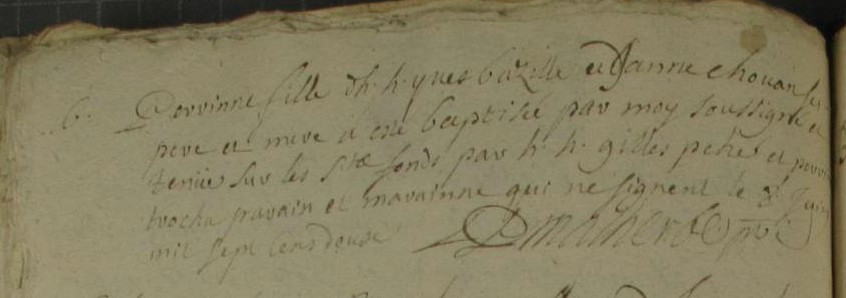 6. Perrinne fille dh. h. yves bazille et Janne chouan ses
pere et mere a esté baptisée par moy soussigné et
tenüe sur les stæ fonds par h. h. gilles pehé et perrine
trocha parain et maraine qui ne signent le 8e Juin
mil sept cens douse